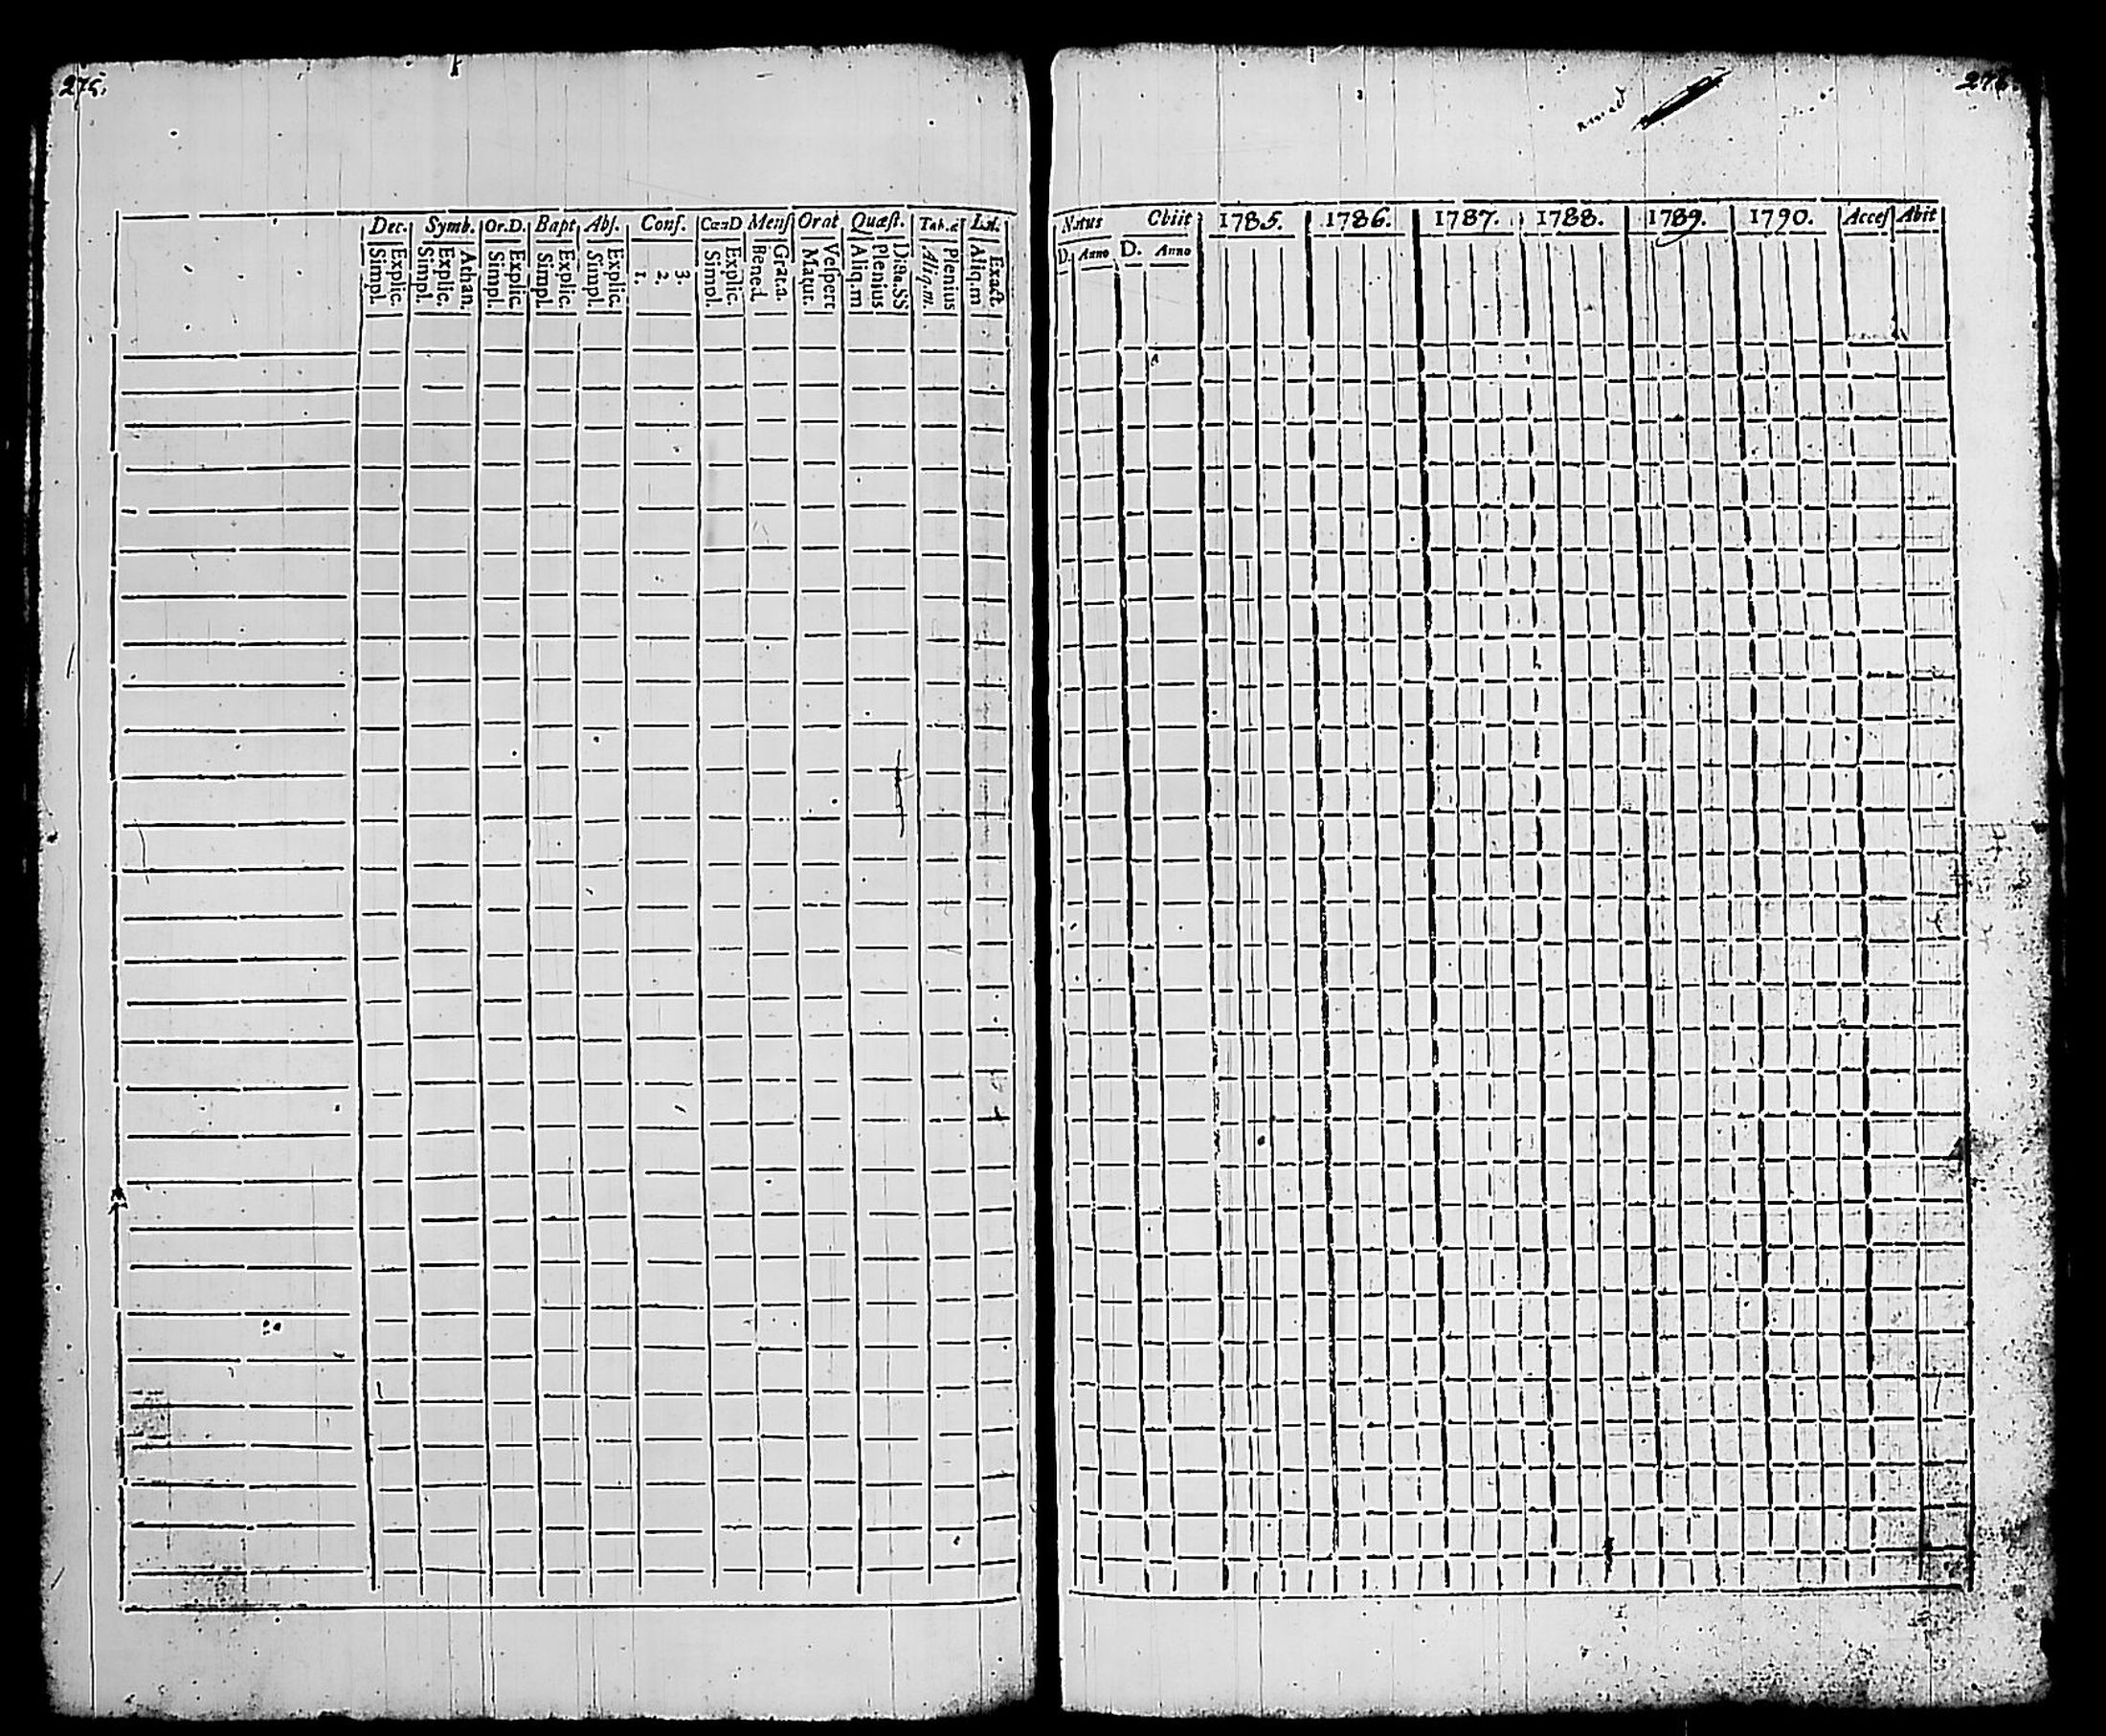 275.
Dec. Symb. Or.D. Bapt Abs. Conf. CænD Mens Orat Quæst. Tab.æ Lit.
Simpl. Explic. Simpl. Explic. Athan. Simpl. Explic. Simpl. Explic. Simpl. Explic. 1. 2. 3. Simpl. Explic. Bened. Grat.a. Matut. Vespert Aliq.m Plenius Dicta.SS Aliq.m. Plenius Aliq.m Exact.
Natus Obiit 1785. 1786. 1787. 1788. 1789. 1790. Acces Abit
D. Anno D. Anno